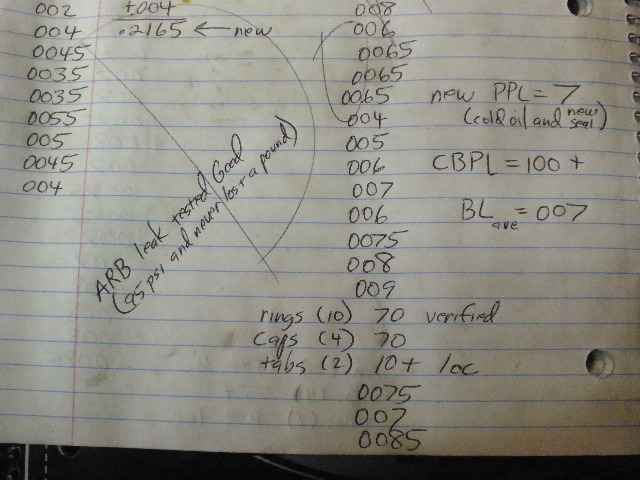 002
004
0045
0035
0035
0055
005
0045
004
+.004
.2165 ← new
ARB leak tested Good
(95 psi and never lost a pound)
008
006
0065
0065
0065
004
005
006
007
006
0075
008
009
new PPL = 7
(cold oil and new seal)
CBPL = 100 +
BL ave = 007
rings (10) 70 verified
caps (4) 70
tabs (2) 10+ loc
0075
007
0085